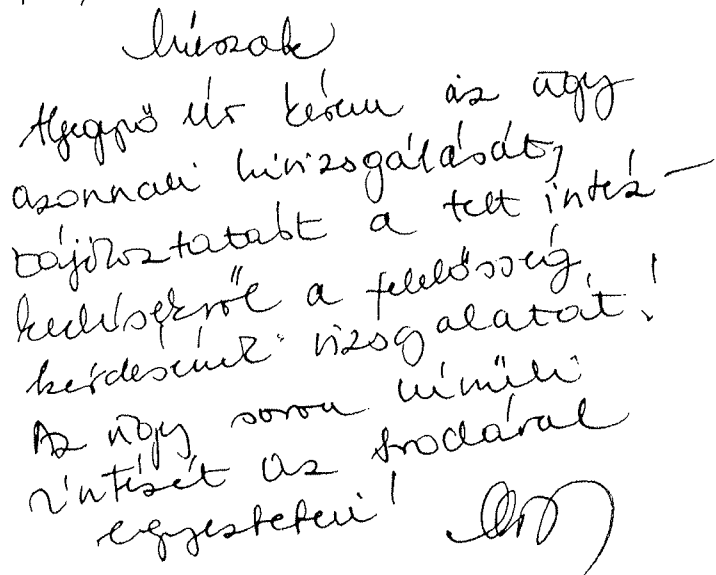 Műszak
Aljegyző Úr kérem az ügy
azonnali kivizsgálását,
tájékoztatást a tett intéz-
kedésekről a felelősség
kérdésének vizsgálatát!
Az ügy soron kívüli
intézését az Irodával
egyeztetni!